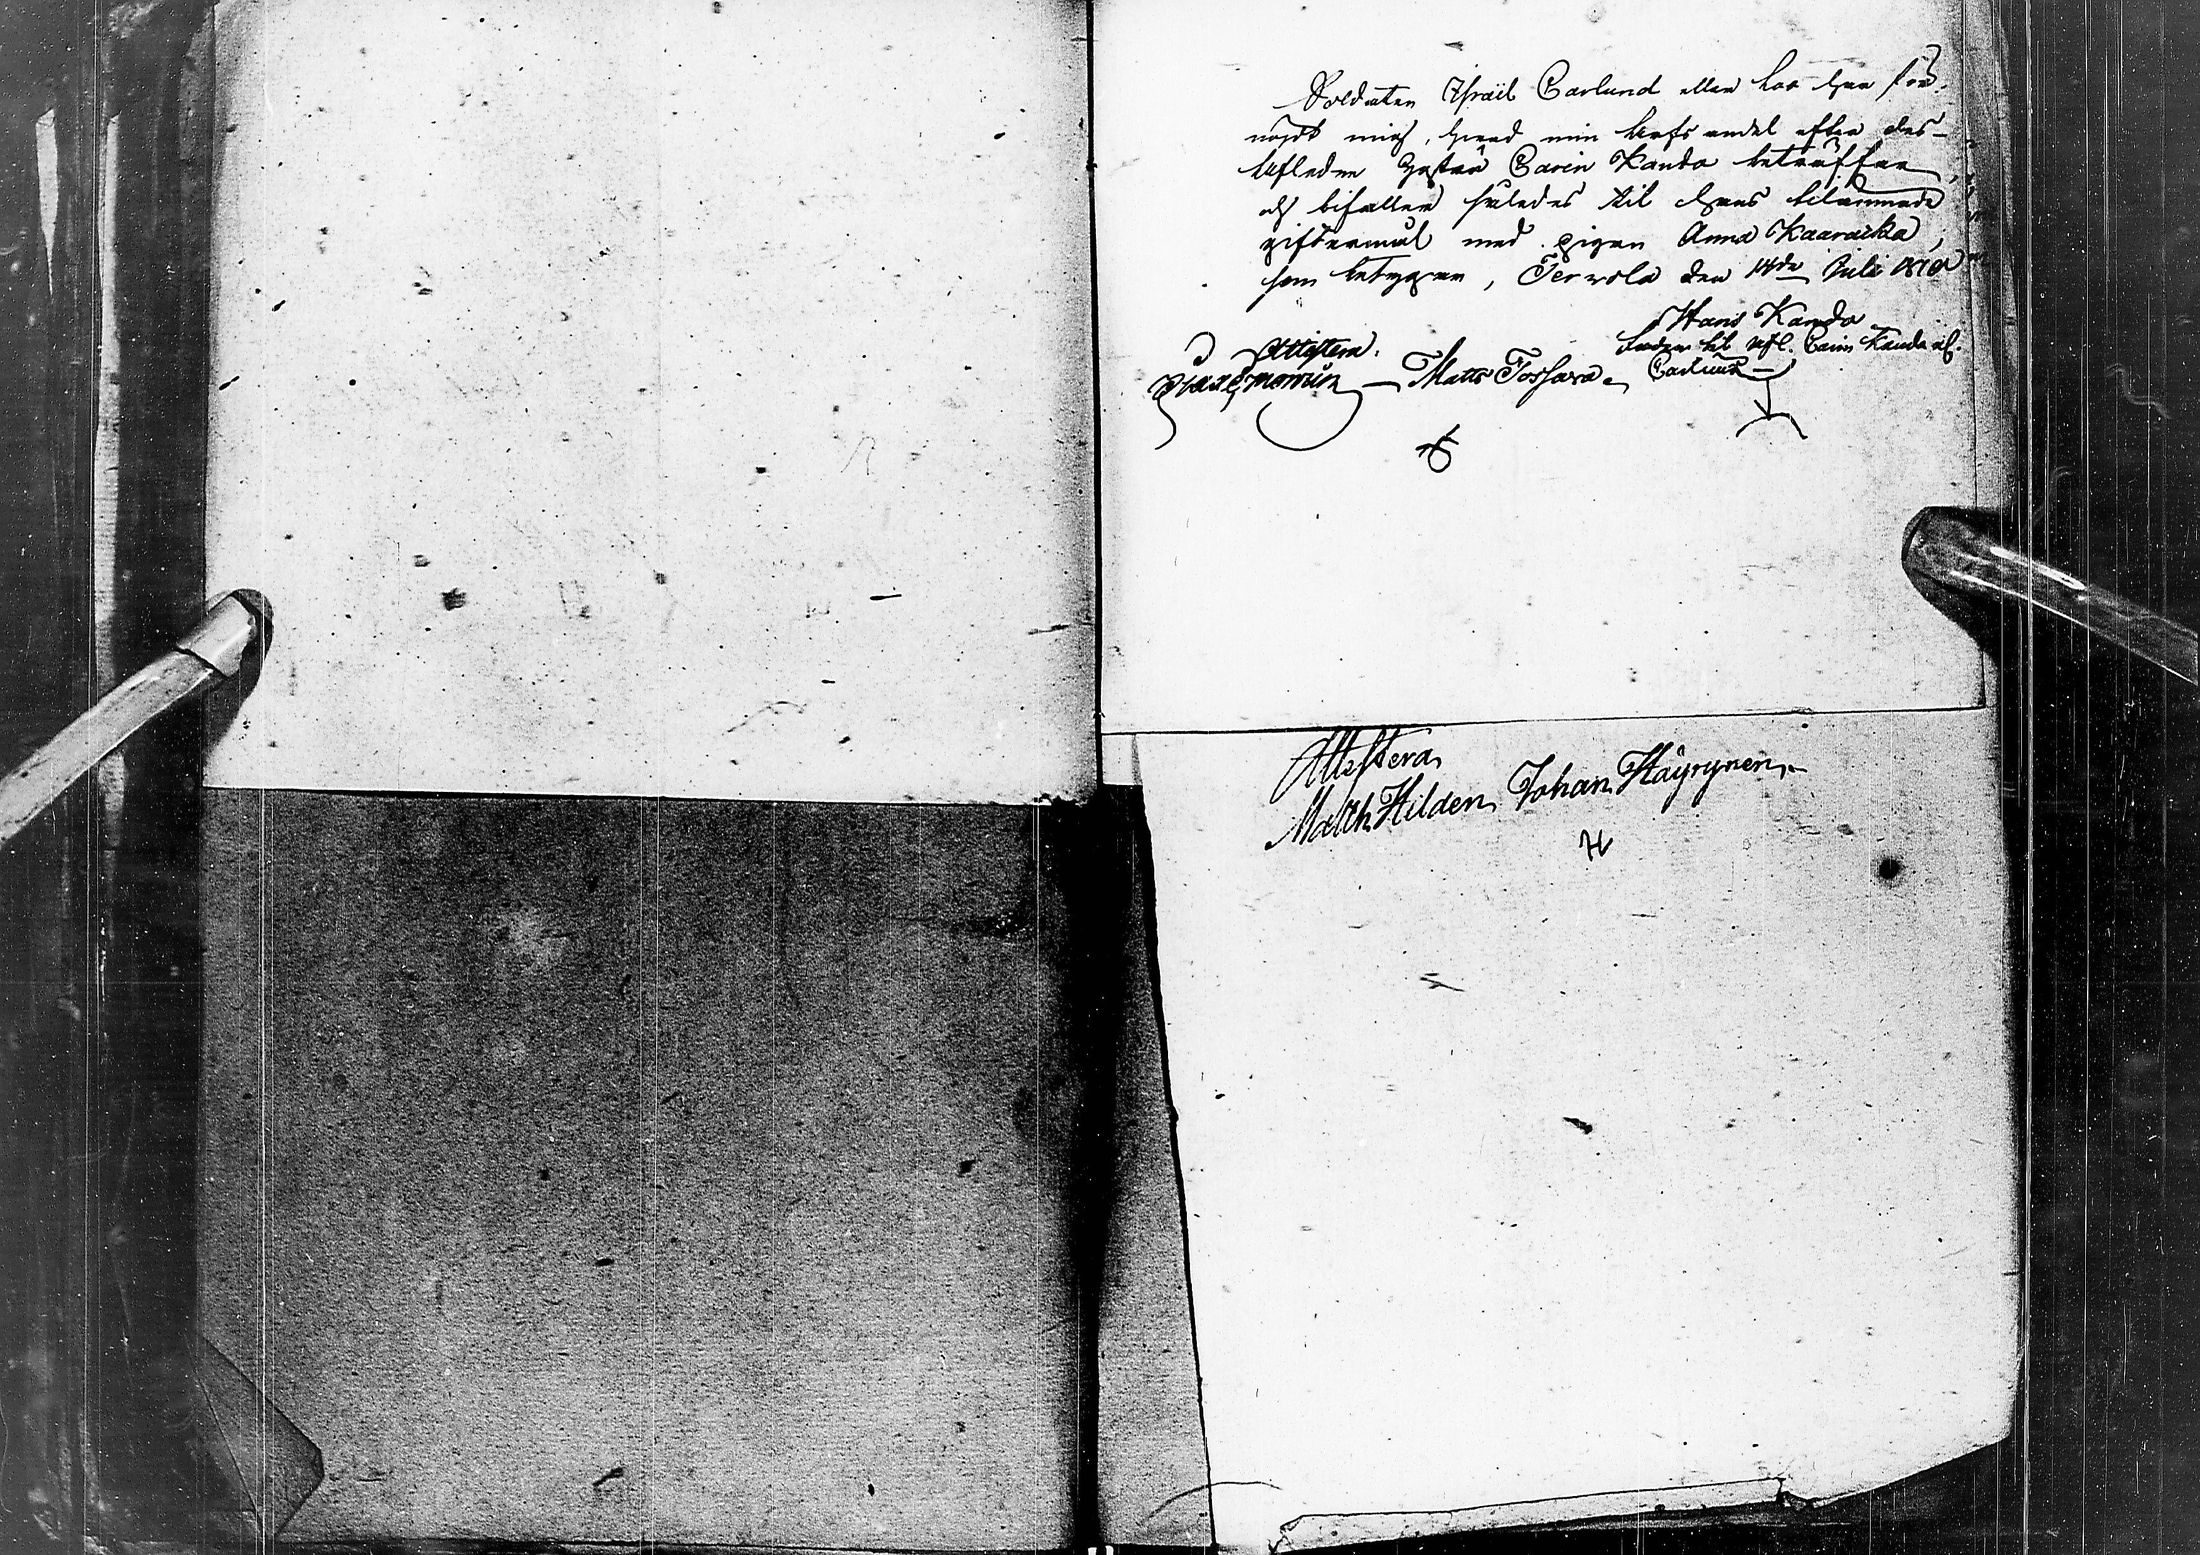 Soldaten Isräel Carlund eller har han för-
nöijt mig, hvad min Arfs andel efter des-
Afledne hustru Carin Kauda beträffar,
och bifaller således til hans tilernnade
giftermål med pigan Anna Kaaraika,
som betygar, Terwola den 14de Juli 1810
Hans Kauda
fader til afl. Carin Kauda el.
Carlund
Attestera.
Matts Tossava
Attestera
Math Hilden Johan Häyrynen